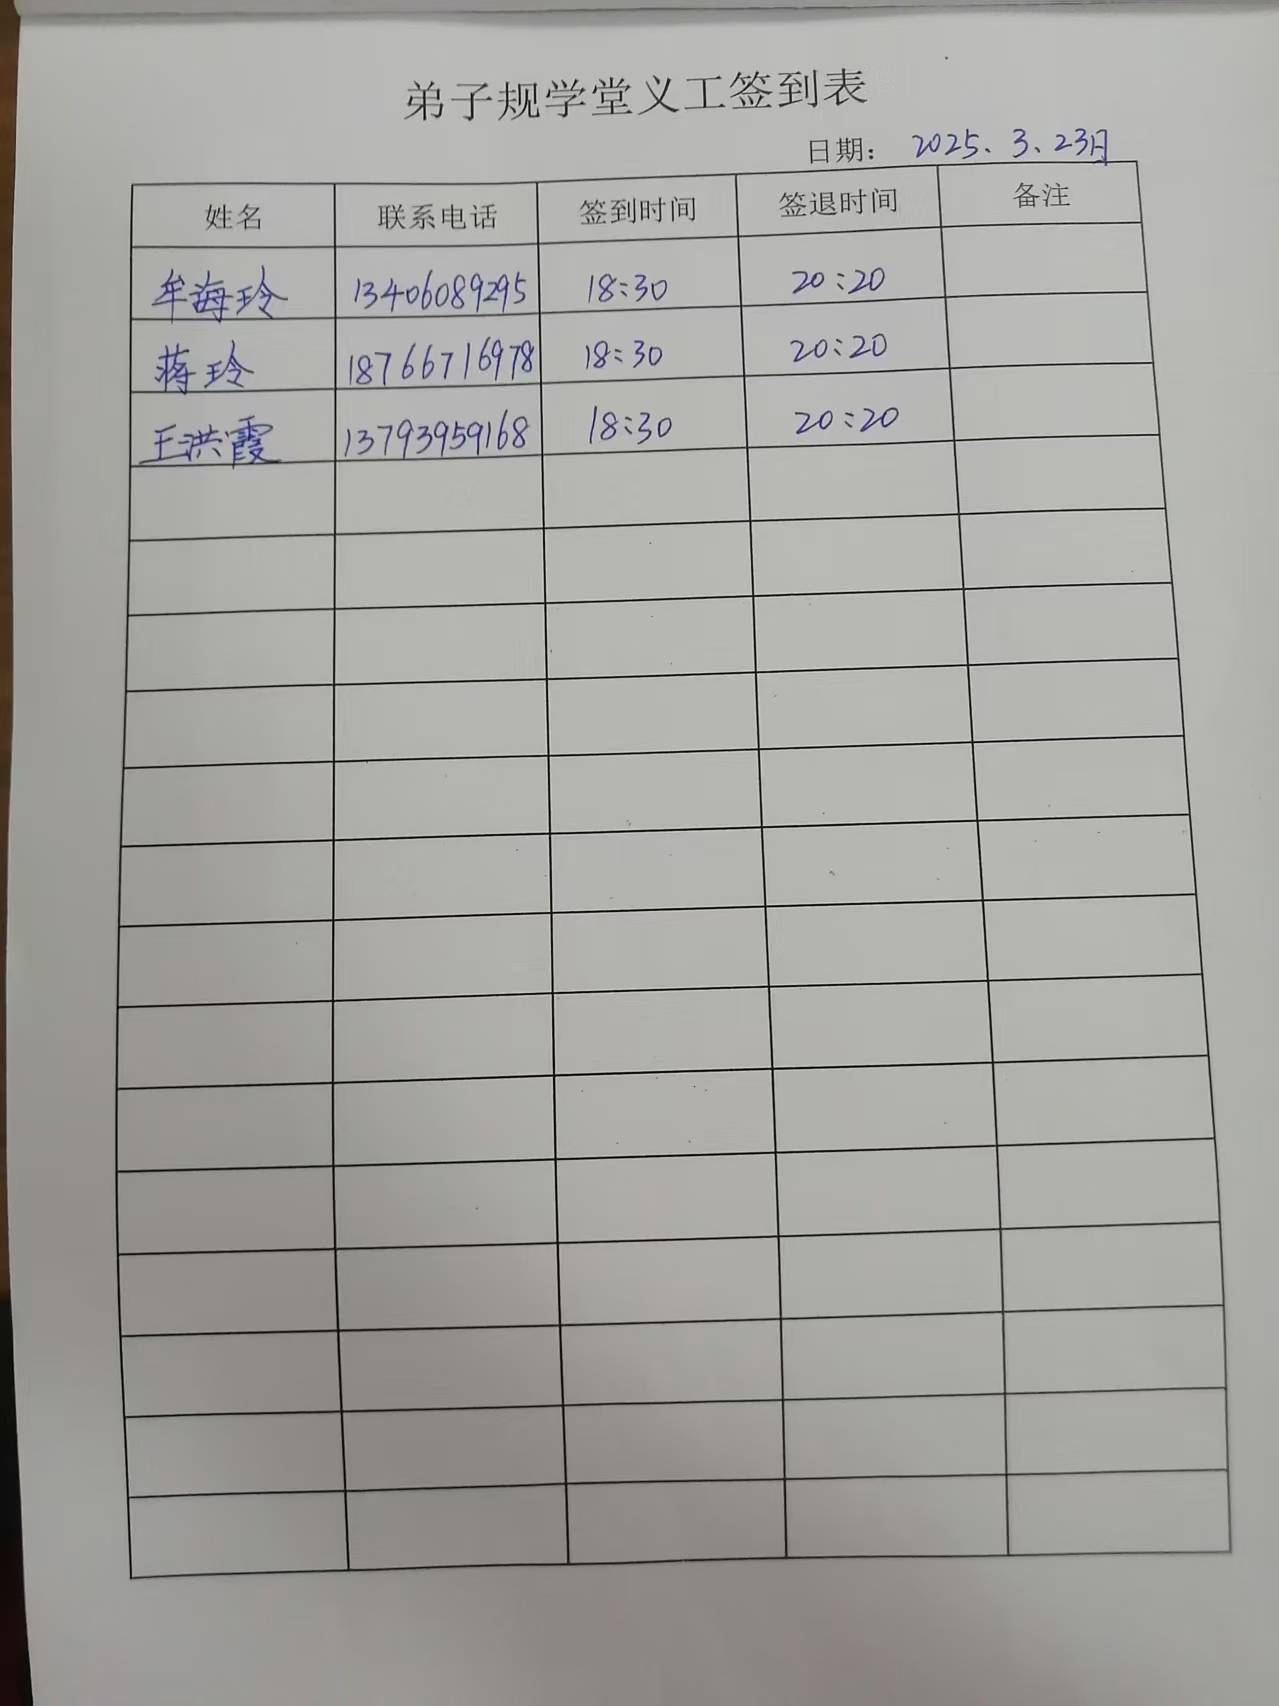 弟子规学堂义工签到表
日期： 2025、3、23日
姓名 联系电话 签到时间 签退时间 备注
牟海玲 13406089295 18:30 20:20
蒋玲 18766716978 18:30 20:20
王洪霞 13793959168 18:30 20:20